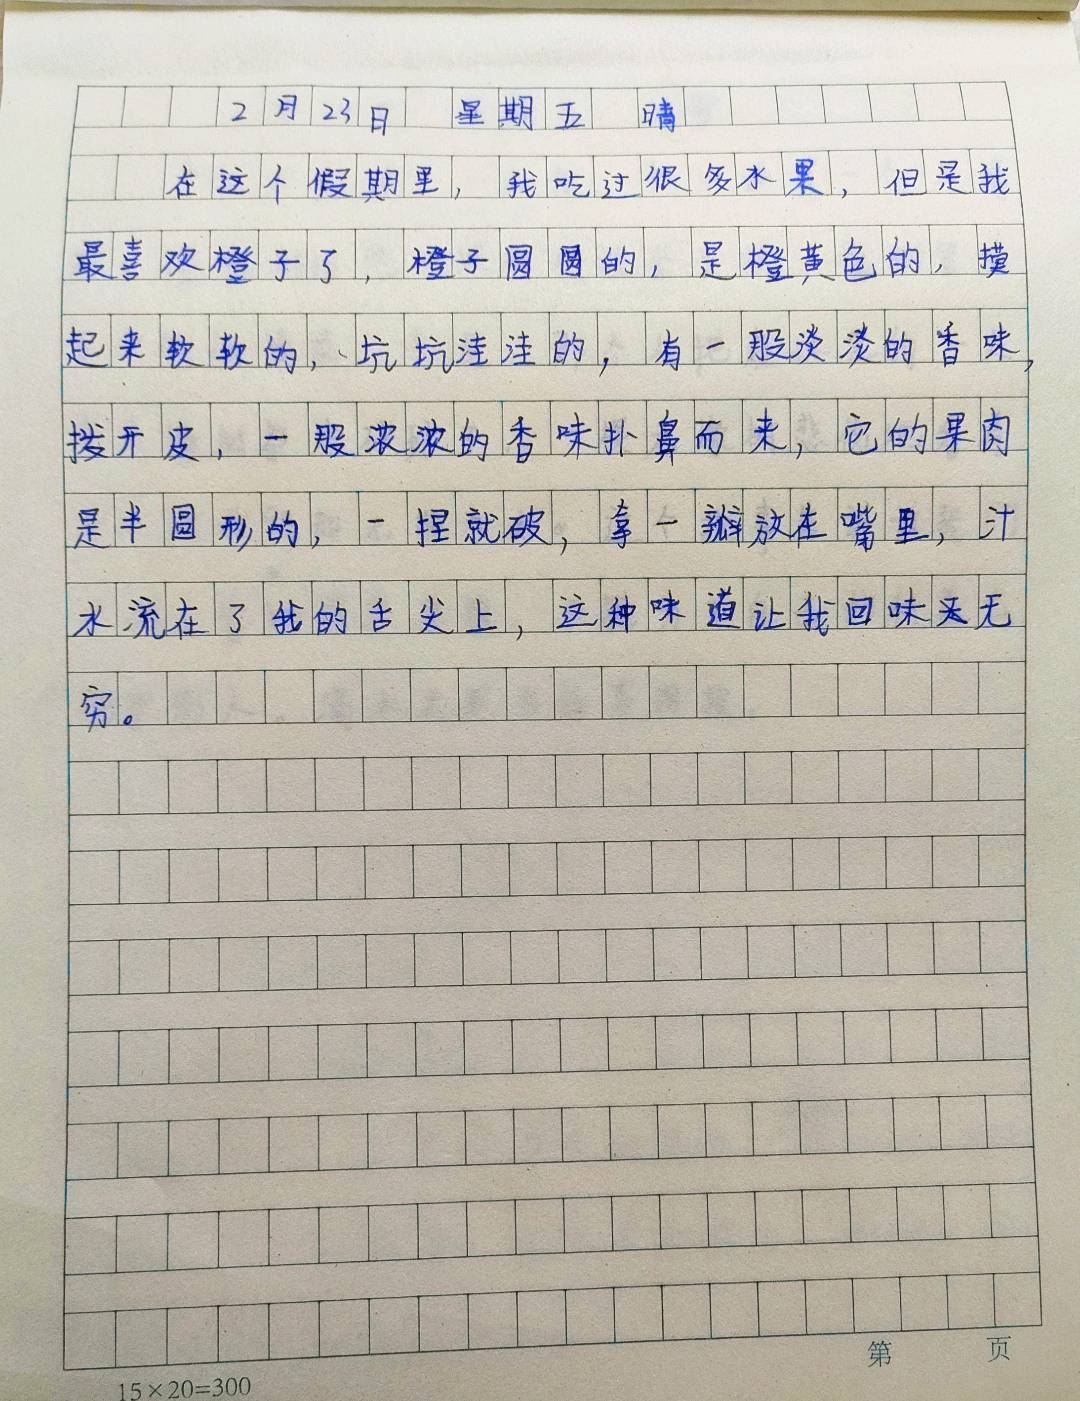 2月23日 星期五 晴
在这个假期里，我吃过很多水果，但是我
最喜欢橙子了，橙子圆圆的，是橙黄色的，摸
起来软软的，坑坑洼洼的，有一股淡淡的香味，
拨开皮，一股浓浓的香味扑鼻而来，它的果肉
是半圆形的，一捏就破，拿一瓣放在嘴里，汁
水流在了我的舌尖上，这种味道让我回味无
穷。
第 页
15×20=300